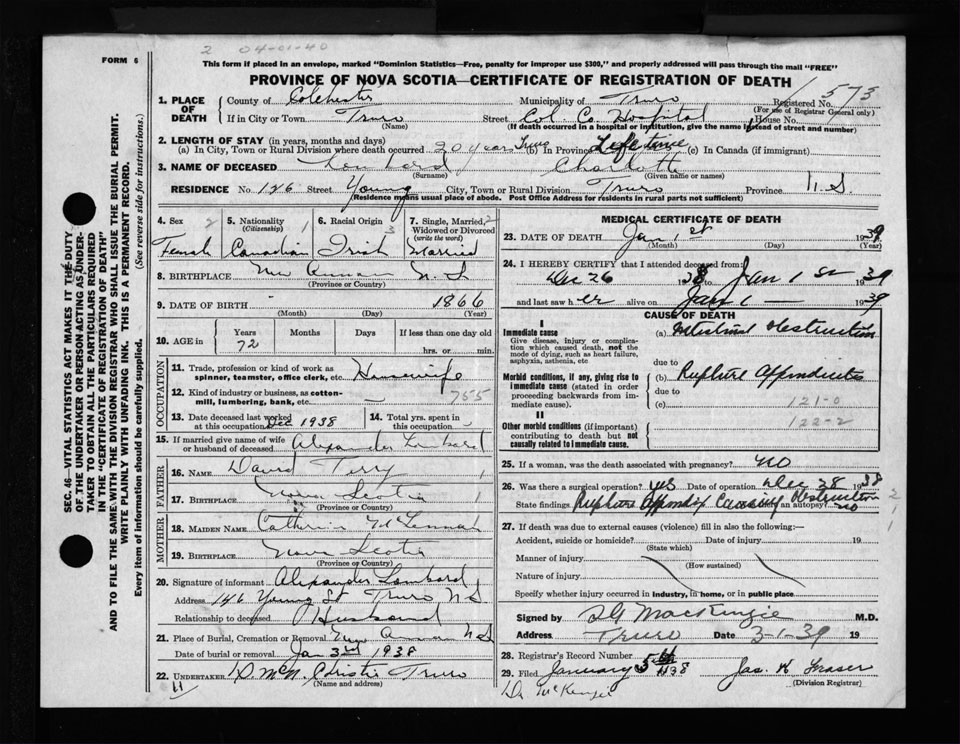 2 04-01-40
FORM 6
This form if placed in an envelope, marked "Dominion Statistics—Free, penalty for improper use $300," and properly addressed will pass through the mail "FREE"
PROVINCE OF NOVA SCOTIA—CERTIFICATE OF REGISTRATION OF DEATH
573
1. PLACE OF DEATH
County of Colchester Municipality of Truro Registered No.
(For use of Registrar General only)
If in City or Town Truro Street Col. Co. Hospital House No.
(Name) (If death occurred in a hospital or institution, give the name instead of street and number)
2. LENGTH OF STAY (in years, months and days)
(a) In City, Town or Rural Division where death occurred 20 years Truro (b) In Province Life time (c) In Canada (if immigrant)
3. NAME OF DECEASED Lombard Charlotte
(Surname) (Given name or names)
RESIDENCE No. 126 Street Young City, Town or Rural Division Truro Province N.S.
(Residence means usual place of abode. Post Office Address for residents in rural parts not sufficient)
4. Sex 5. Nationality 6. Racial Origin 7. Single, Married,
(Citizenship) Widowed or Divorced
(write the word)
Female Canadian Irish Married
8. BIRTHPLACE New Annan N.S.
(Province or Country)
9. DATE OF BIRTH 1866
(Month) (Day) (Year)
10. AGE in Years Months Days If less than one day old
72 hrs. or min.
OCCUPATION
11. Trade, profession or kind of work as
spinner, teamster, office clerk, etc. Housewife
12. Kind of industry or business, as cotton-
mill, lumbering, bank, etc. 755
13. Date deceased last worked 14. Total yrs. spent in
at this occupation Dec 1938 this occupation
15. If married give name of wife
or husband of deceased Alexander Lombard
FATHER
16. NAME David Terry
17. BIRTHPLACE Nova Scotia
(Province or Country)
MOTHER
18. MAIDEN NAME Catherin McLennan
19. BIRTHPLACE Nova Scotia
(Province or Country)
20. Signature of informant Alexander Lombard
Address 146 Young St Truro N S
Relationship to deceased Husband
21. Place of Burial, Cremation or Removal New Annan N S
Date of burial or removal Jan 3rd 1938
22. UNDERTAKER D. McN. Christie Truro
(Name and address)
MEDICAL CERTIFICATE OF DEATH
23. DATE OF DEATH Jan 1st 1939
(Month) (Day) (Year)
24. I HEREBY CERTIFY that I attended deceased from:
Dec 26 1938 to Jan 1 st 1939
and last saw her alive on Jan 1 — 1939
CAUSE OF DEATH
I
Immediate cause (a) Intestinal Obstruction
Give disease, injury or complica-
tion which caused death, not the
mode of dying, such as heart failure,
asphyxia, asthenia, etc
due to
Morbid conditions, if any, giving rise to (b) Rupture Appendicitis
immediate cause (stated in order due to
proceeding backwards from im- (c) 121-0
mediate cause).
II
122-2
Other morbid conditions (if important)
contributing to death but not
causally related to immediate cause.
25. If a woman, was the death associated with pregnancy? NO
26. Was there a surgical operation? yes Date of operation Dec 28 1938
State findings Rupture Appendix Causing Obstruction an autopsy? no
27. If death was due to external causes (violence) fill in also the following:—
Accident, suicide or homicide? Date of injury 19
(State which)
Manner of injury
(How sustained)
Nature of injury
Specify whether injury occurred in industry, in home, or in public place
Signed by MacKenzie M.D.
Address Truro Date 3-1-39 19
28. Registrar's Record Number
29. Filed January 5th 1938 Jas. K. Fraser
(Division Registrar)
Dr McKenzie
SEC. 46—VITAL STATISTICS ACT MAKES IT THE DUTY
OF THE UNDERTAKER OR PERSON ACTING AS UNDER-
TAKER TO OBTAIN ALL THE PARTICULARS REQUIRED
IN THE "CERTIFICATE OF REGISTRATION OF DEATH"
AND TO FILE THE SAME WITH THE DIVISION REGISTRAR WHO SHALL ISSUE THE BURIAL PERMIT.
WRITE PLAINLY WITH UNFADING INK. THIS IS A PERMANENT RECORD.
Every item of information should be carefully supplied. (See reverse side for instructions.)